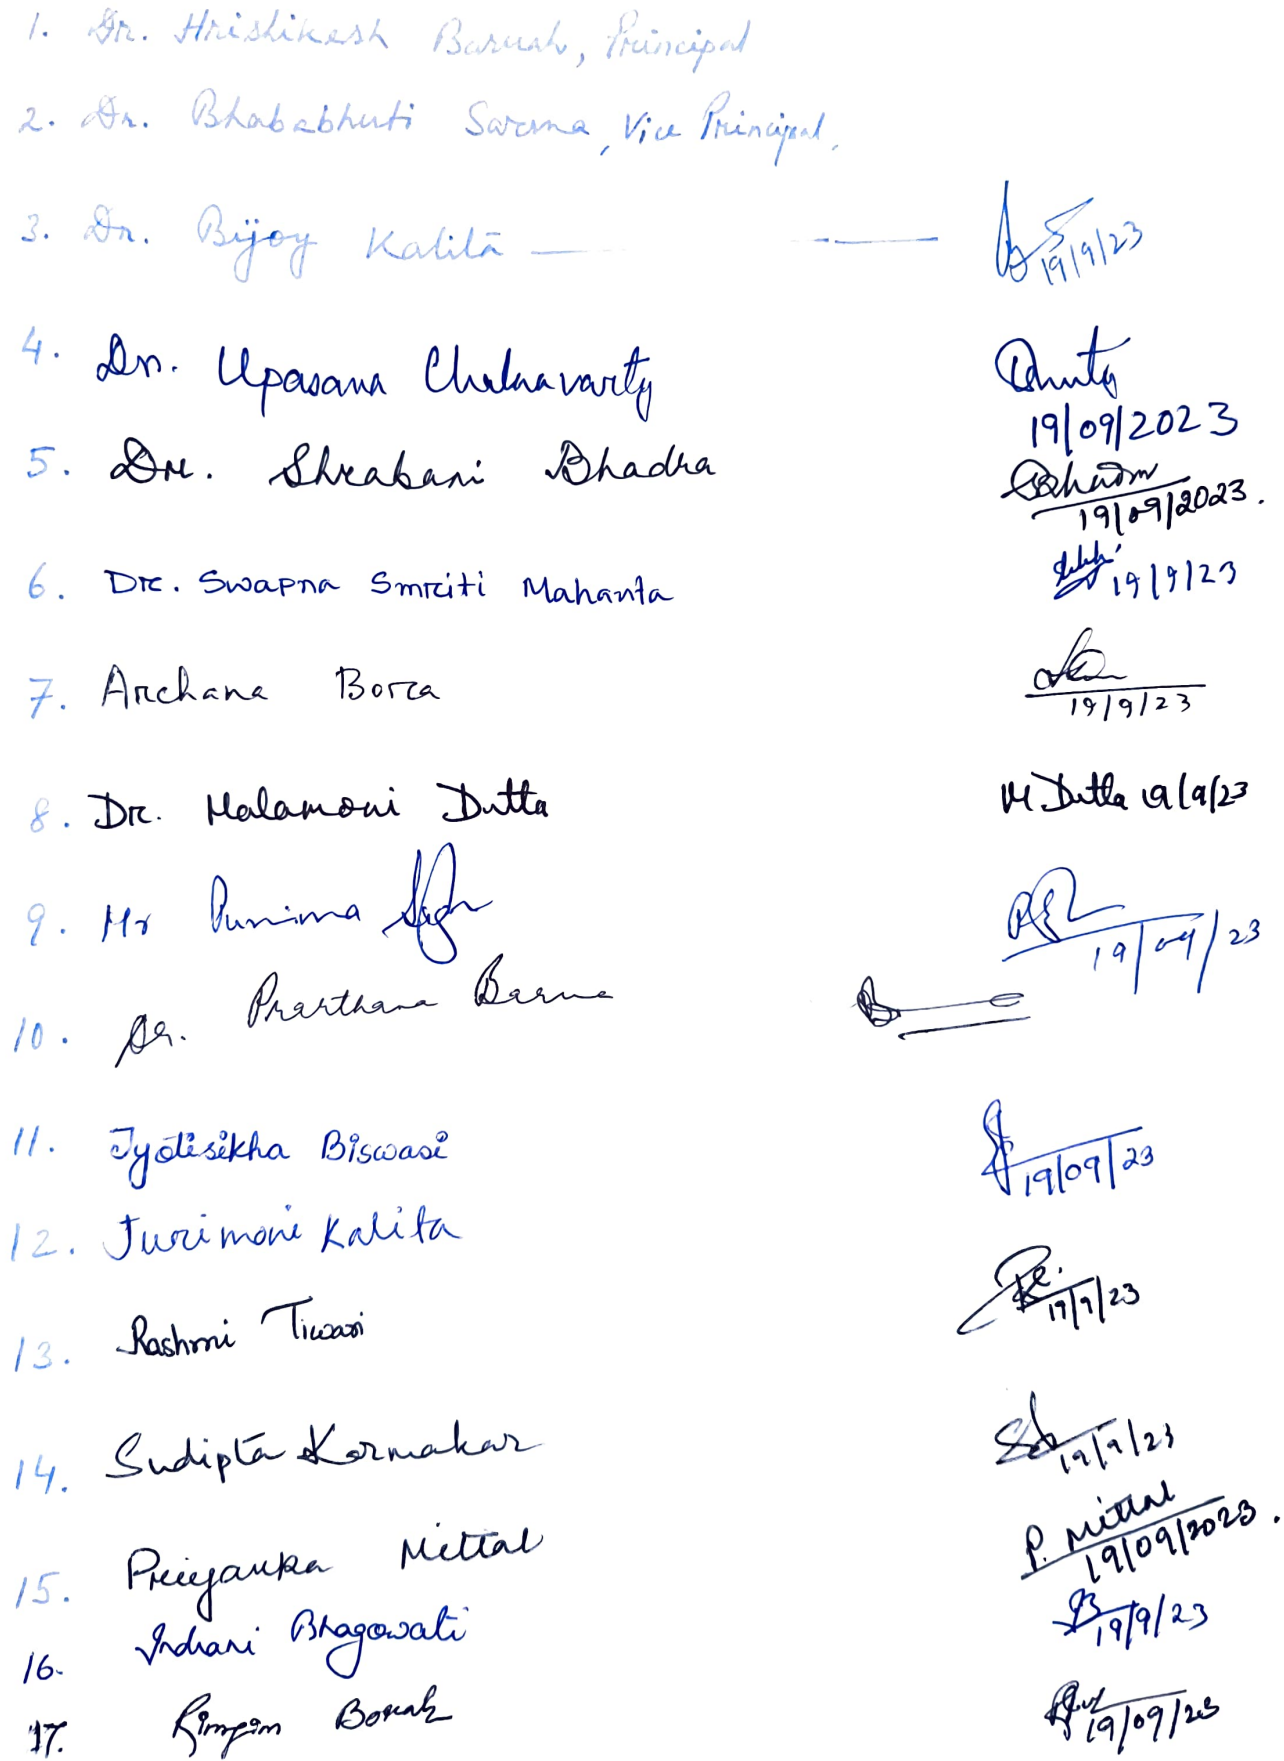 1. Dr. Hrishikesh Baruah, Principal
2. Dr. Bhababhuti Sarma, Vice Principal,
3. Dr. Bijoy Kalita 19/9/23
4. Dr. Upasana Chakravarty
19/09/2023
5. Dr. Shrabani Bhadra
19/09/2023.
6. Dr. Swapna Smriti Mahanta 19/9/23
7. Archana Bora
19/9/23
8. Dr. Malamoni Dutta M Dutta 19/9/23
9. Mr Punima
19/09/23
10. Dr. Prarthana Barua
11. Jyotisikha Biswasi
19/09/23
12. Jurimoni Kalita
19/9/23
13. Rashmi Tiwari
14. Sudipta Karmakar
19/9/23
15. Priyanka Mittal P. Mittal
19/09/2023.
16. Indrani Bhagowati 19/9/23
17. Rimpim Borah
19/09/23